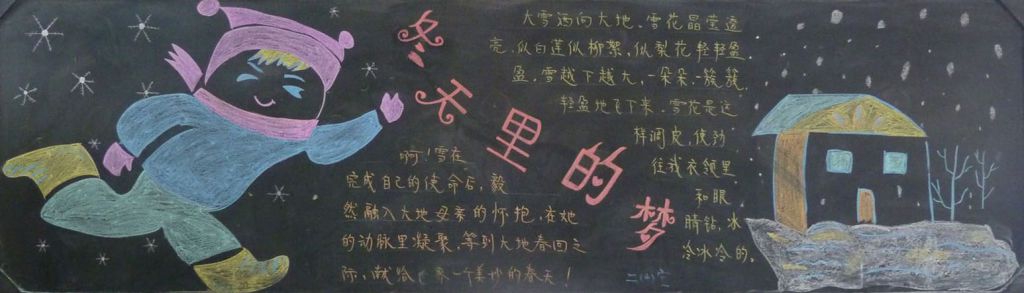 冬天里的梦
大雪洒向大地、雪花晶莹透
亮、似白莲似柳絮、似梨花轻轻盈
盈，雪越下越大，一朵朵一簇簇，
轻盈地飞下来，雪花是这
样调皮，使劲
往我衣领里
和眼
睛钻，冰
冷冰冷的。
啊！雪在
完成自己的使命后，毅
然融入大地母亲的怀抱，在她
的动脉里凝聚，等到大地春回之
际，就给 来一个美妙的春天！